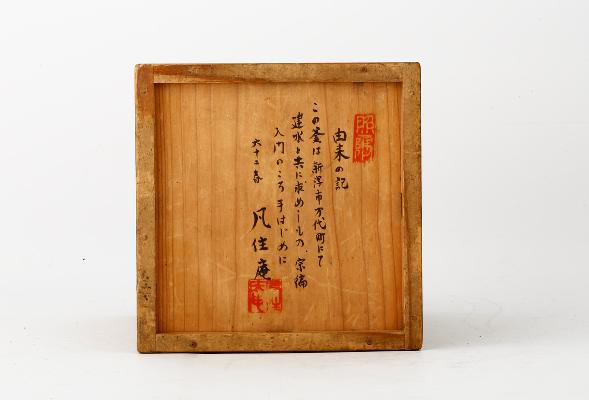 由来の記
この釜は新潟市万代町にて
建水と共に求めしもの、宗徧
入門のころ手はじめに
六十二翁
凡住庵